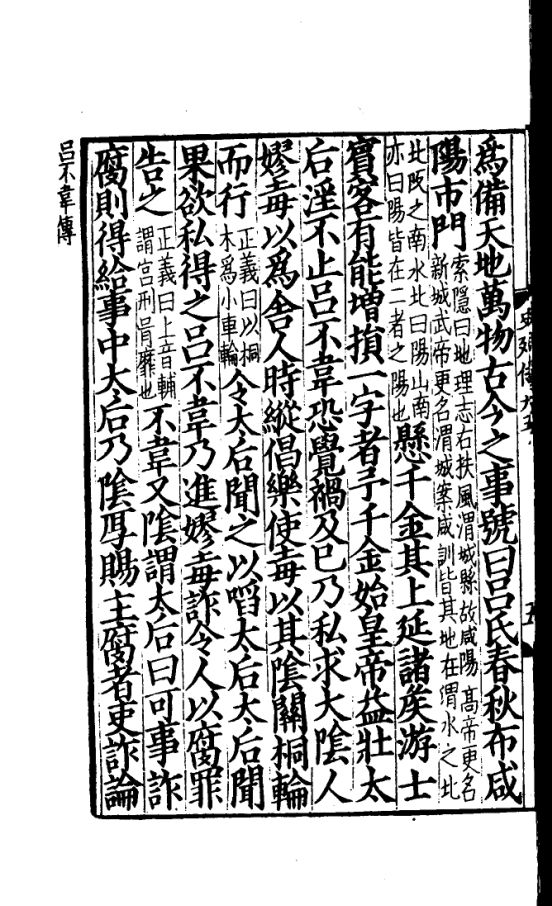 爲備天地萬物古今之事號曰吕氏春秋布咸
陽市門索隱曰地理志右扶風渭城縣故咸陽高帝更名
新城武帝更名渭城案咸訓皆其地在渭水之北
北阪之南水北曰陽山南
亦曰陽皆在二者之陽也懸千金其上延諸侯游士
賓客有能增損一字者予千金始皇帝益壯太
后淫不止吕不韋恐覺禍及己乃私求大陰人
嫪毐以爲舍人時縱倡樂使毐以其陰關桐輪
而行正義曰以桐
木爲小車輪令太后聞之以啗太后太后聞
果欲私得之吕不韋乃進嫪毐詐令人以腐罪
告之正義曰上音輔
謂宫刑胥靡也不韋又陰謂太后曰可事詐
腐則得給事中太后乃陰厚賜主腐者吏詐論
吕不韋傳